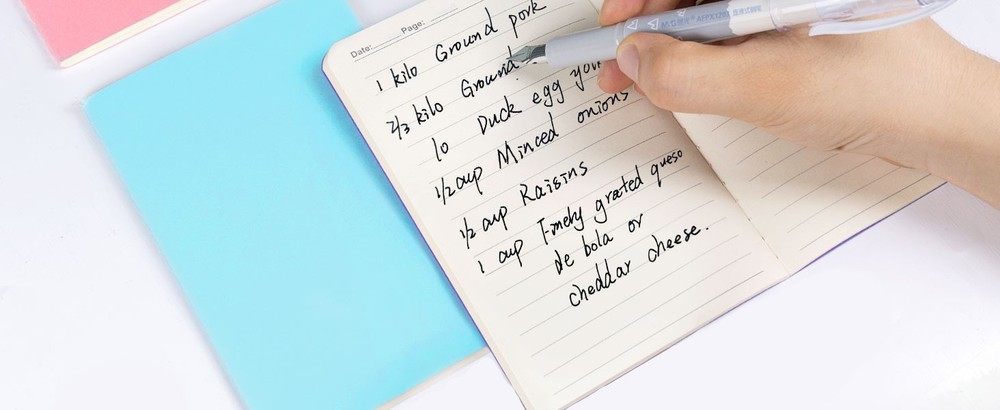 Date: Page:
1 kilo Ground pork
2/3 kilo Ground
10 Duck egg
1/2 cup Minced onions
1/2 cup Raisins
1 cup Finely grated queso
de bola or
cheddar cheese.